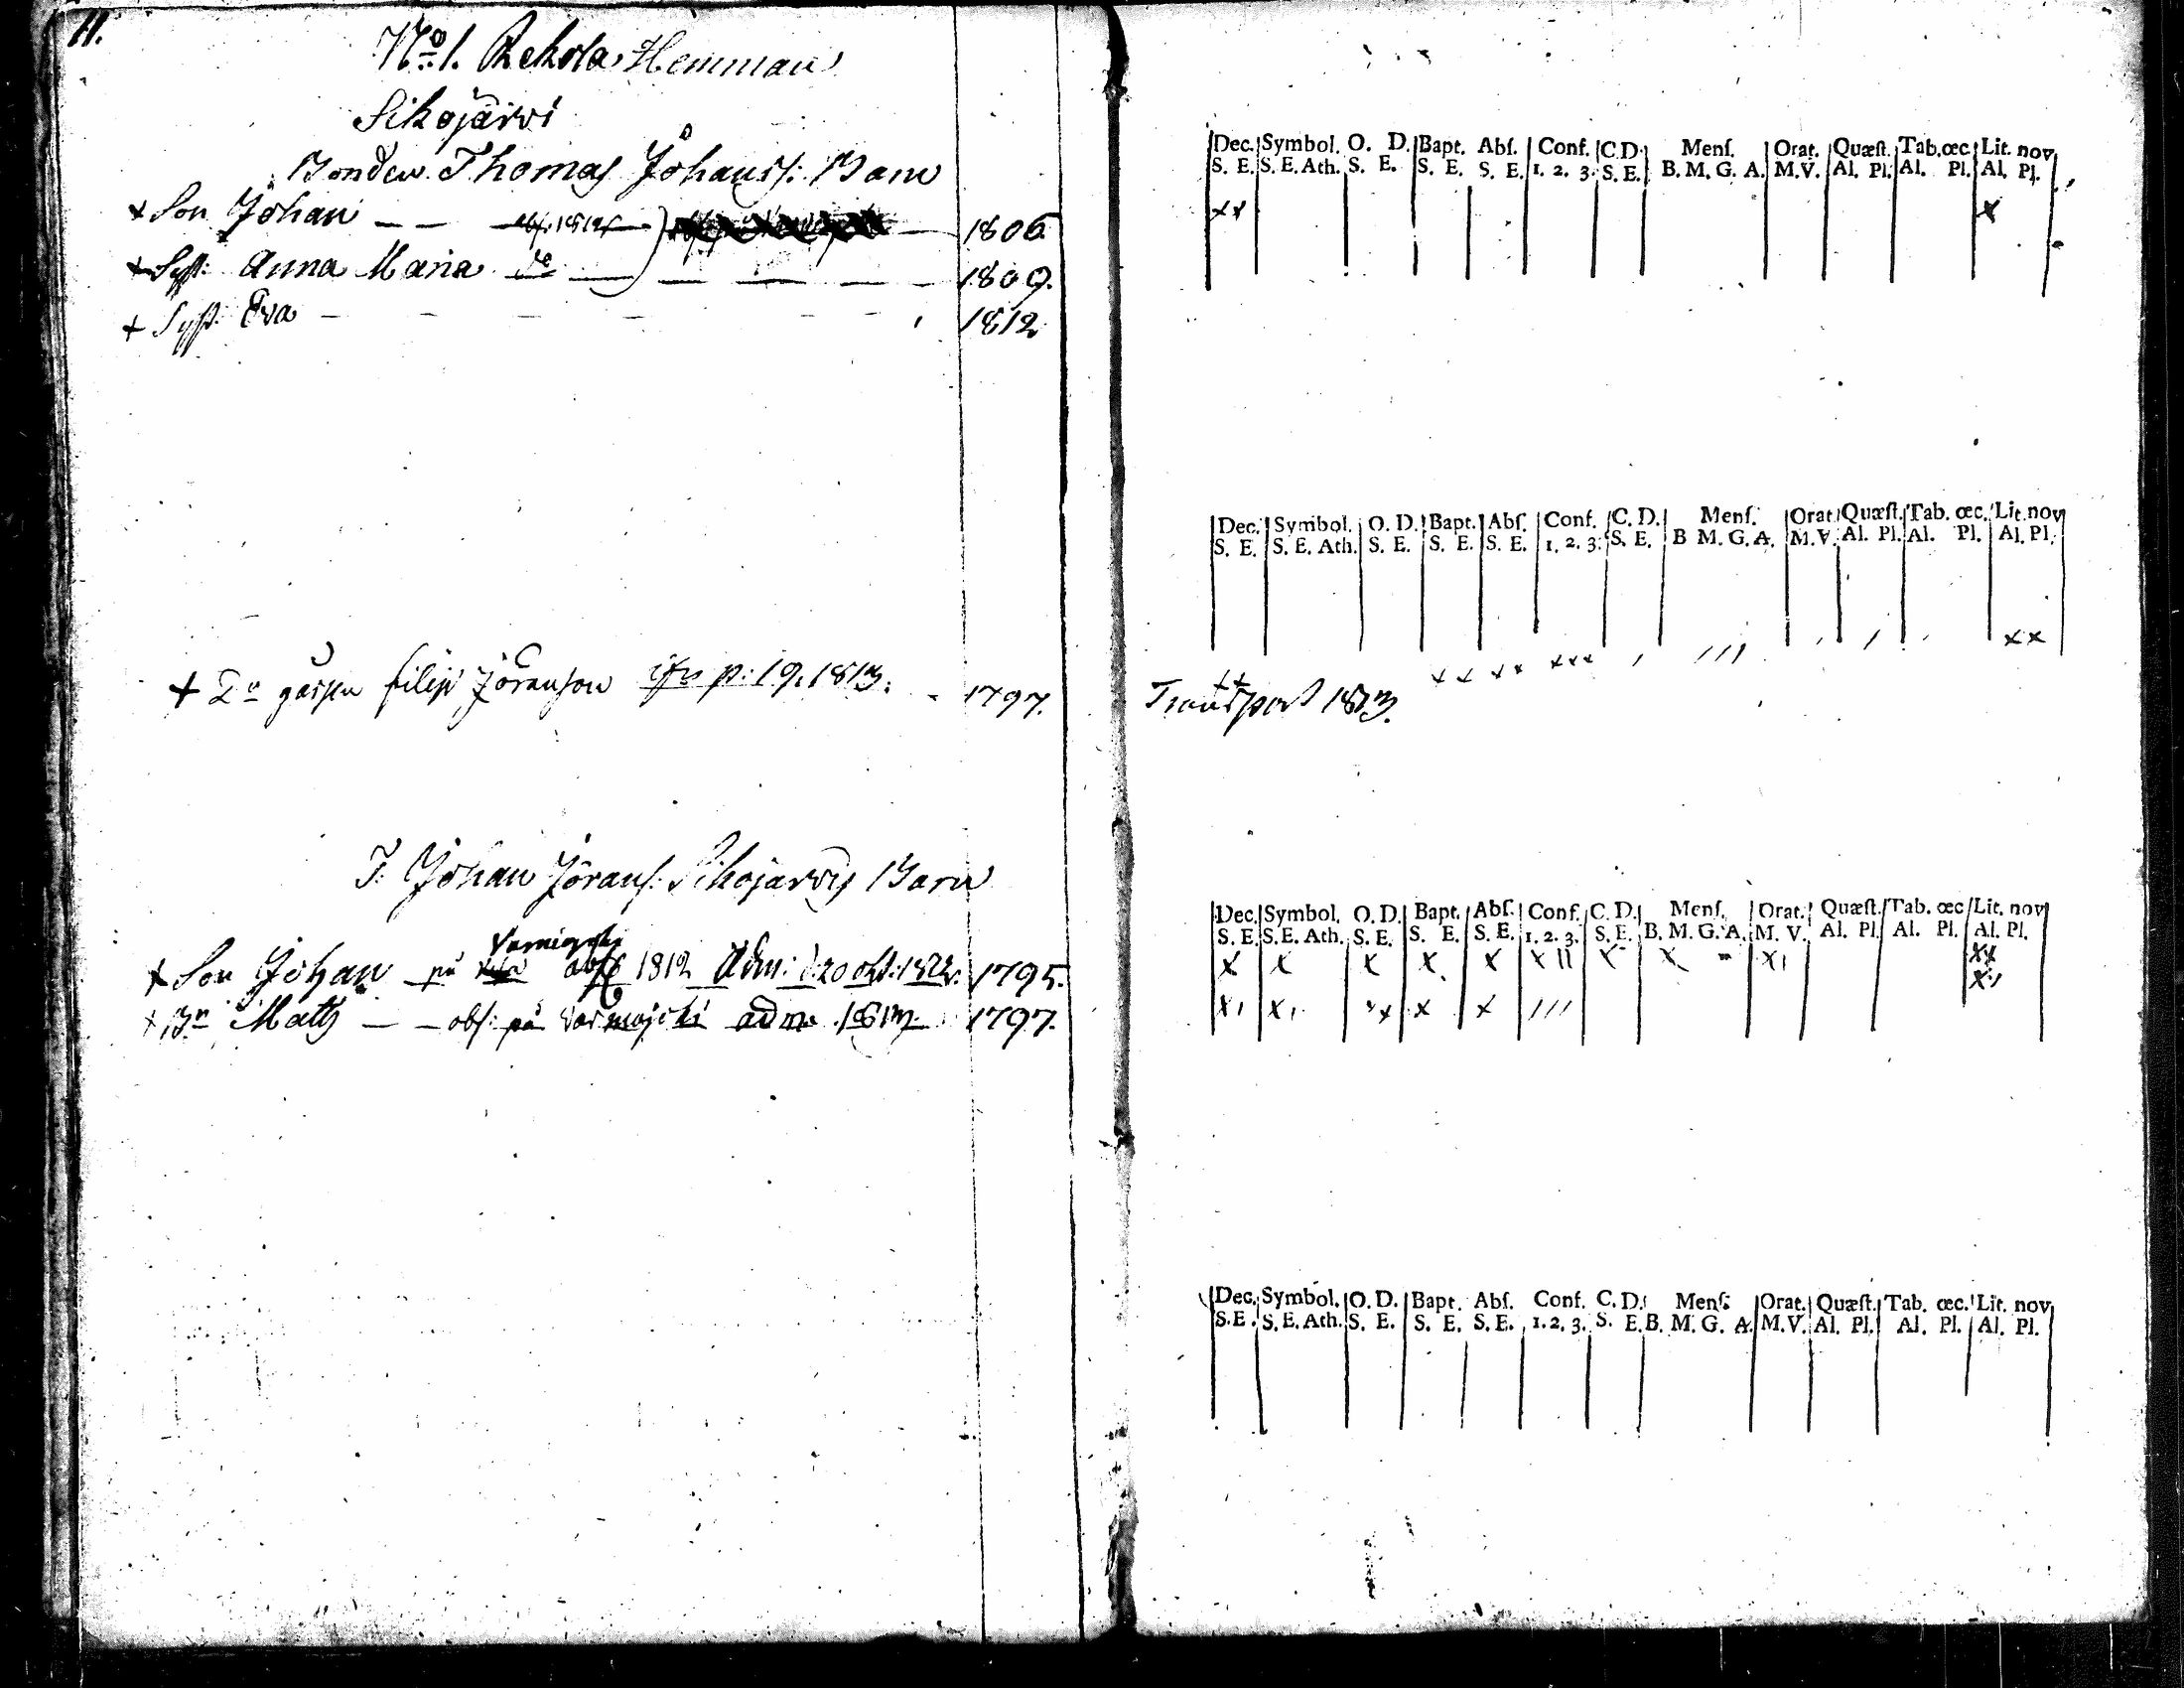 11.
No 1. Rekola Hemman
Sikojärvi
Bonden Thomas Johanss: Barn
+ Son Johan — — 1806
+ Syst: Anna Maria do — — — 1809.
+ Syst: Eva — — — — 1812
+ Dn Filip Jöranson p: 19. 1813. 1797.
J: Johan Jörans: Sikojarvis Barn
+ Son Johan på abs 1812 Adm: d: 20 okt: 1822. 1795.
+ Bn Matts — — abs: på adm. 1813. 1797.
Dec. Symbol. O. D. Bapt. Abſ. Conf. C.D. Menſ. Orat. Quæſt. Tab. œc. Lit. nov
S. E. S. E. Ath. S. E. S. E. S. E. 1. 2. 3. S. E. B. M. G. A. M.V. Al. Pl. Al. Pl. Al. Pl.
x x x
Dec. Symbol. O. D. Bapt. Abſ. Conf. C. D. Menſ. Orat. Quæſt. Tab. œc. Lit. nov
S. E. S. E. Ath. S. E. S. E. S. E. 1. 2. 3. S. E. B M. G. A. M.V. Al. Pl. Al. Pl. Al. Pl.
x x x x x x x x x / / / / / / x x
Transport 1813.
Dec. Symbol. O. D. Bapt. Abſ. Conf. C. D. Menſ. Orat. Quæſt. Tab. œc Lit. nov
S. E. S. E. Ath. S. E. S. E. S. E. 1. 2. 3. S. E. B. M. G. A. M. V. Al. Pl. Al. Pl. Al. Pl.
x x x x x x I I x x x I x x
x I x I x x x x / / / x
Dec. Symbol. O. D. Bapt. Abſ. Conf. C. D. Menſ. Orat. Quæſt. Tab. œc. Lit. nov
S. E. S. E. Ath. S. E. S. E. S. E. 1. 2. 3. S. E. B. M. G. A. M.V. Al. Pl. Al. Pl. Al. Pl.